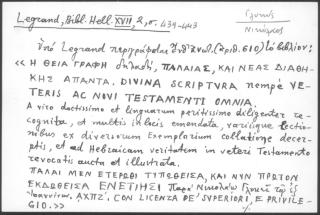 Legrand, Bibl. Hell. XVII, 2, σ. 439-443
Γλυκύς
Νικόλαος
Ὑπὸ Legrand περιγράφεται (ἀριθ. 610) τὸ βιβλίον:
«Η ΘΕΙΑ ΓΡΑΦΗ δηλαδή, ΠΑΛΑΙΑΣ, ΚΑΙ ΝΕΑΣ ΔΙΑΘΗ-
ΚΗΣ ΑΠΑΝΤΑ. DIVINA SCRIPTURA nempe VE-
TERIS AC NOVI TESTAMENTI OMNIA.
A viro doctissimo et linguarum peritissimo diligenter re-
cognita, et multis in locis emendata, variisque lectio-
nibus ex diversorum Exemplarium collatione decer-
ptis, et ad Hebraicam veritatem in veteri Testamento
revocatis aucta et illustrata.
ΠΑΛΑΙ ΜΕΝ ΕΤΕΡΩΘΙ ΤΥΠΩΘΕΙΣΑ, ΚΑΙ ΝΥΝ ΠΡΩΤΟΝ
ΕΚΔΩΘΕΙΣΑ ΕΝΕΤΙΗΣΙ Παρὰ Νικολάῳ Γλυκεῖ τῷ ἐξ
Ἰωαννίνων. ΑΧΠΖ΄. CON LICENZA DE' SUPERIORI, E PRIVILE-
GIO.»